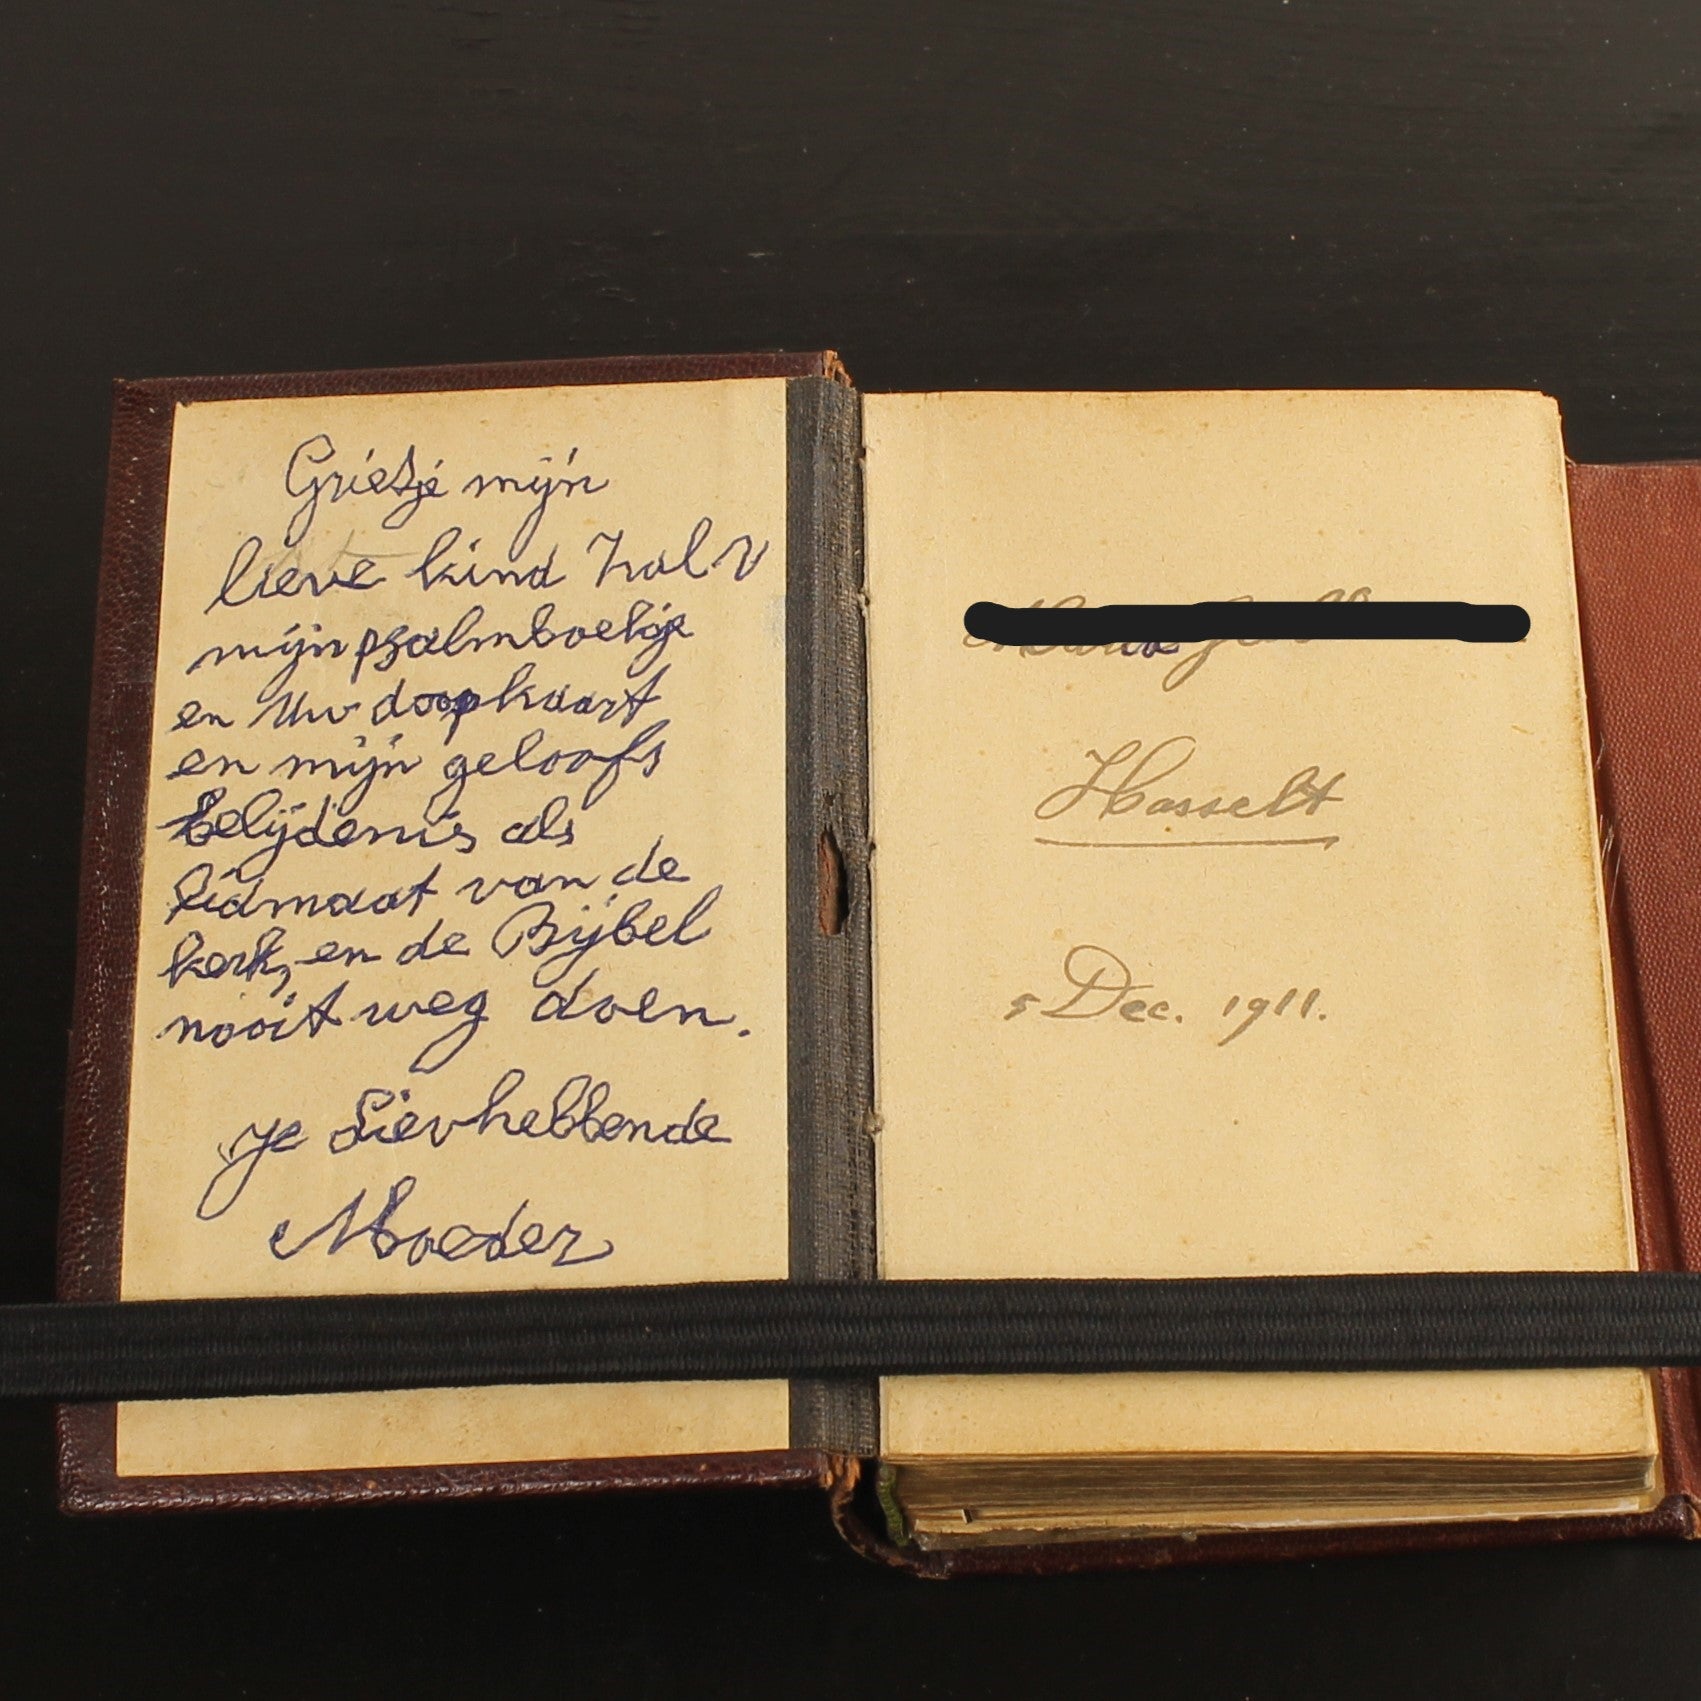 Grietje mijn
lieve kind zal U
mijn psalmboekje
en Uw doopkaart
en mijn geloofs
belijdenis als
lidmaat van de
kerk, en de Bijbel
nooit weg doen.
je Lievhebbende
Moeder
Hasselt
5 Dec. 1911.